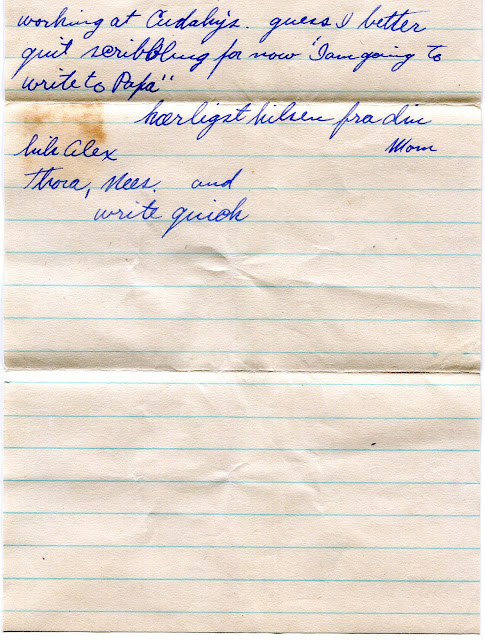 working at Cudahy's. guess I better
quit scribbling for now "I am going to
write to Papa"
kærligst hilsen fra din
hils Alex Mom
Thora, Nees. and
write quick